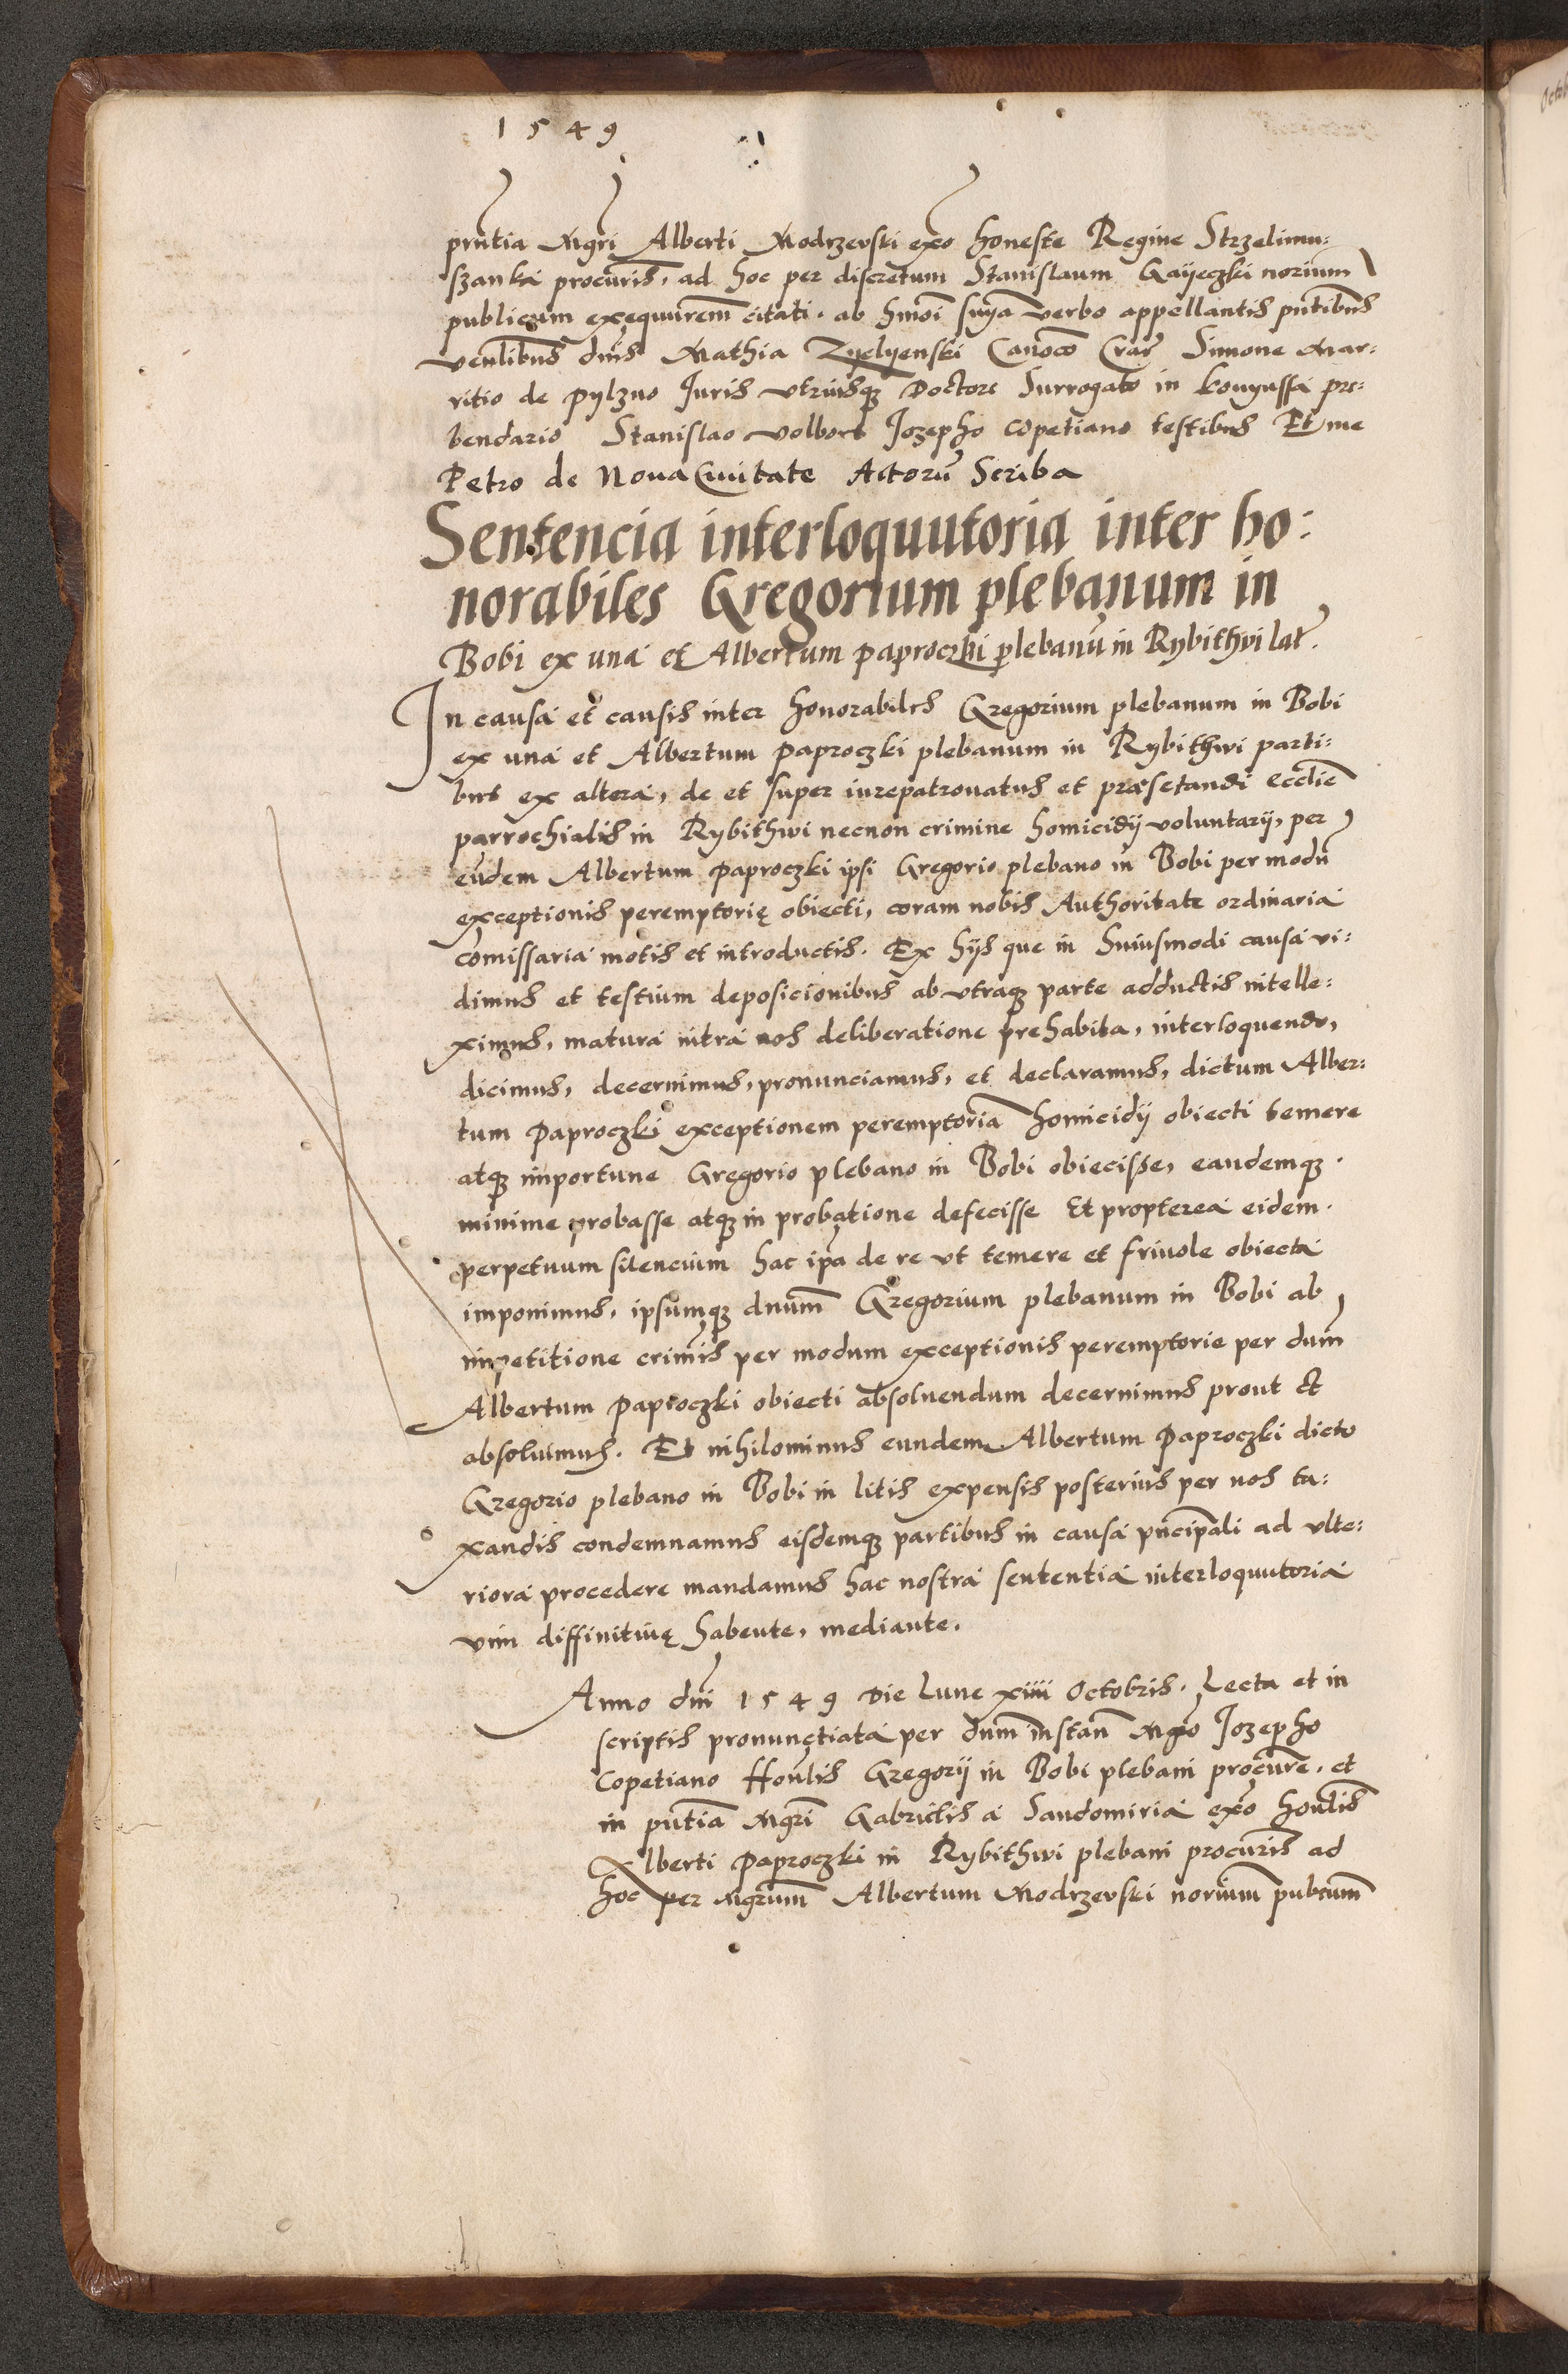 1549
pñtia Mgri Alberti Modrzevski exo honeste Regine Strzelimu:
szanka procuris, ad hoc per discretum Stanislaum Gayeczki norium
publicum exequurem citati. ab hmoi snya verbo appellantis pntibus
venlibus dnis Mathia Zyelyenski Canoco Crac̃ Simone Mar:
ritio de Pylzno Juris utriusq₃ Doctore Surrogato in Konyussa pre:
bendario Stanislao Volbors Jozepho Copetiano testibus Et me
Petro de Nova Civitate Actorũ Scriba
Sentencia interloquutoria inter ho:
norabiles Gregorium plebanum in
Bobi ex una et Albertum Paproczki plebanũ in Rybithvi lat̃.
In causa et causis inter honorabiles Gregorium plebanum in Bobi
ex una et Albertum Paproczki plebanum in Rybithwi parti:
bus ex altera, de et super iurepatronatus et præsetandi Ecclie
parrochialis in Rybithwi necnon crimine homicidij voluntarij, per
eundem Albertum Paproczki ipsi Gregorio plebano in Bobi per modũ
exceptionis peremptorię obiecti, coram nobis Authoritate ordinaria
comissaria motis et introductis. Ex hijs que in huiusmodi causa vi:
dimus et testium deposicionibus ab utraq₃ parte adductis intelle:
ximus, matura intra nos deliberatione prehabita, interloquendo,
dicimus, decernimus, pronunciamus, et declaramus, dictum Alber:
tum Paproczki exceptionem peremptoriã homicidij obiecti temere
atq₃ importune Gregorio plebano in Bobi obiecisse, eandemq₃.
minime probasse atq₃ in probatione defecisse Et propterea eidem.
perpetuum silencium hac ipa de re ut temere et frivole obiecta
imponimus, ipsumq₃ dnum Gregorium plebanum in Bobi ab
impetitione crimis per modum exceptionis peremptorie per dum
Albertum Paproczki obiecti absolvendum decernimus prout et
absolvimus. Et nihilominus eundem Albertum Paproczki dicto
Gregorio plebano in Bobi in litis expensis posterius per nos ta:
xandis condemnamus eisdemq₃ partibus in causa pncipali ad ulte:
riora procedere mandamus hac nostra sententia interloquutoria
vim diffinitivę habente, mediante.
Anno dni 1549 Die Lune xiiii Octobris. Lecta et in
scriptis pronunctiata per dnum instan̄ Mgro Jozepho
Copetiano Honlis Gregorij in Bobi plebani procure. et
in pntia Mgri Gabrielis a Sandomiria exo honlis
Alberti Paproczki in Rybithwi plebani procuris ad
hoc per Mgrum Albertum Modrzevski norium pubcum